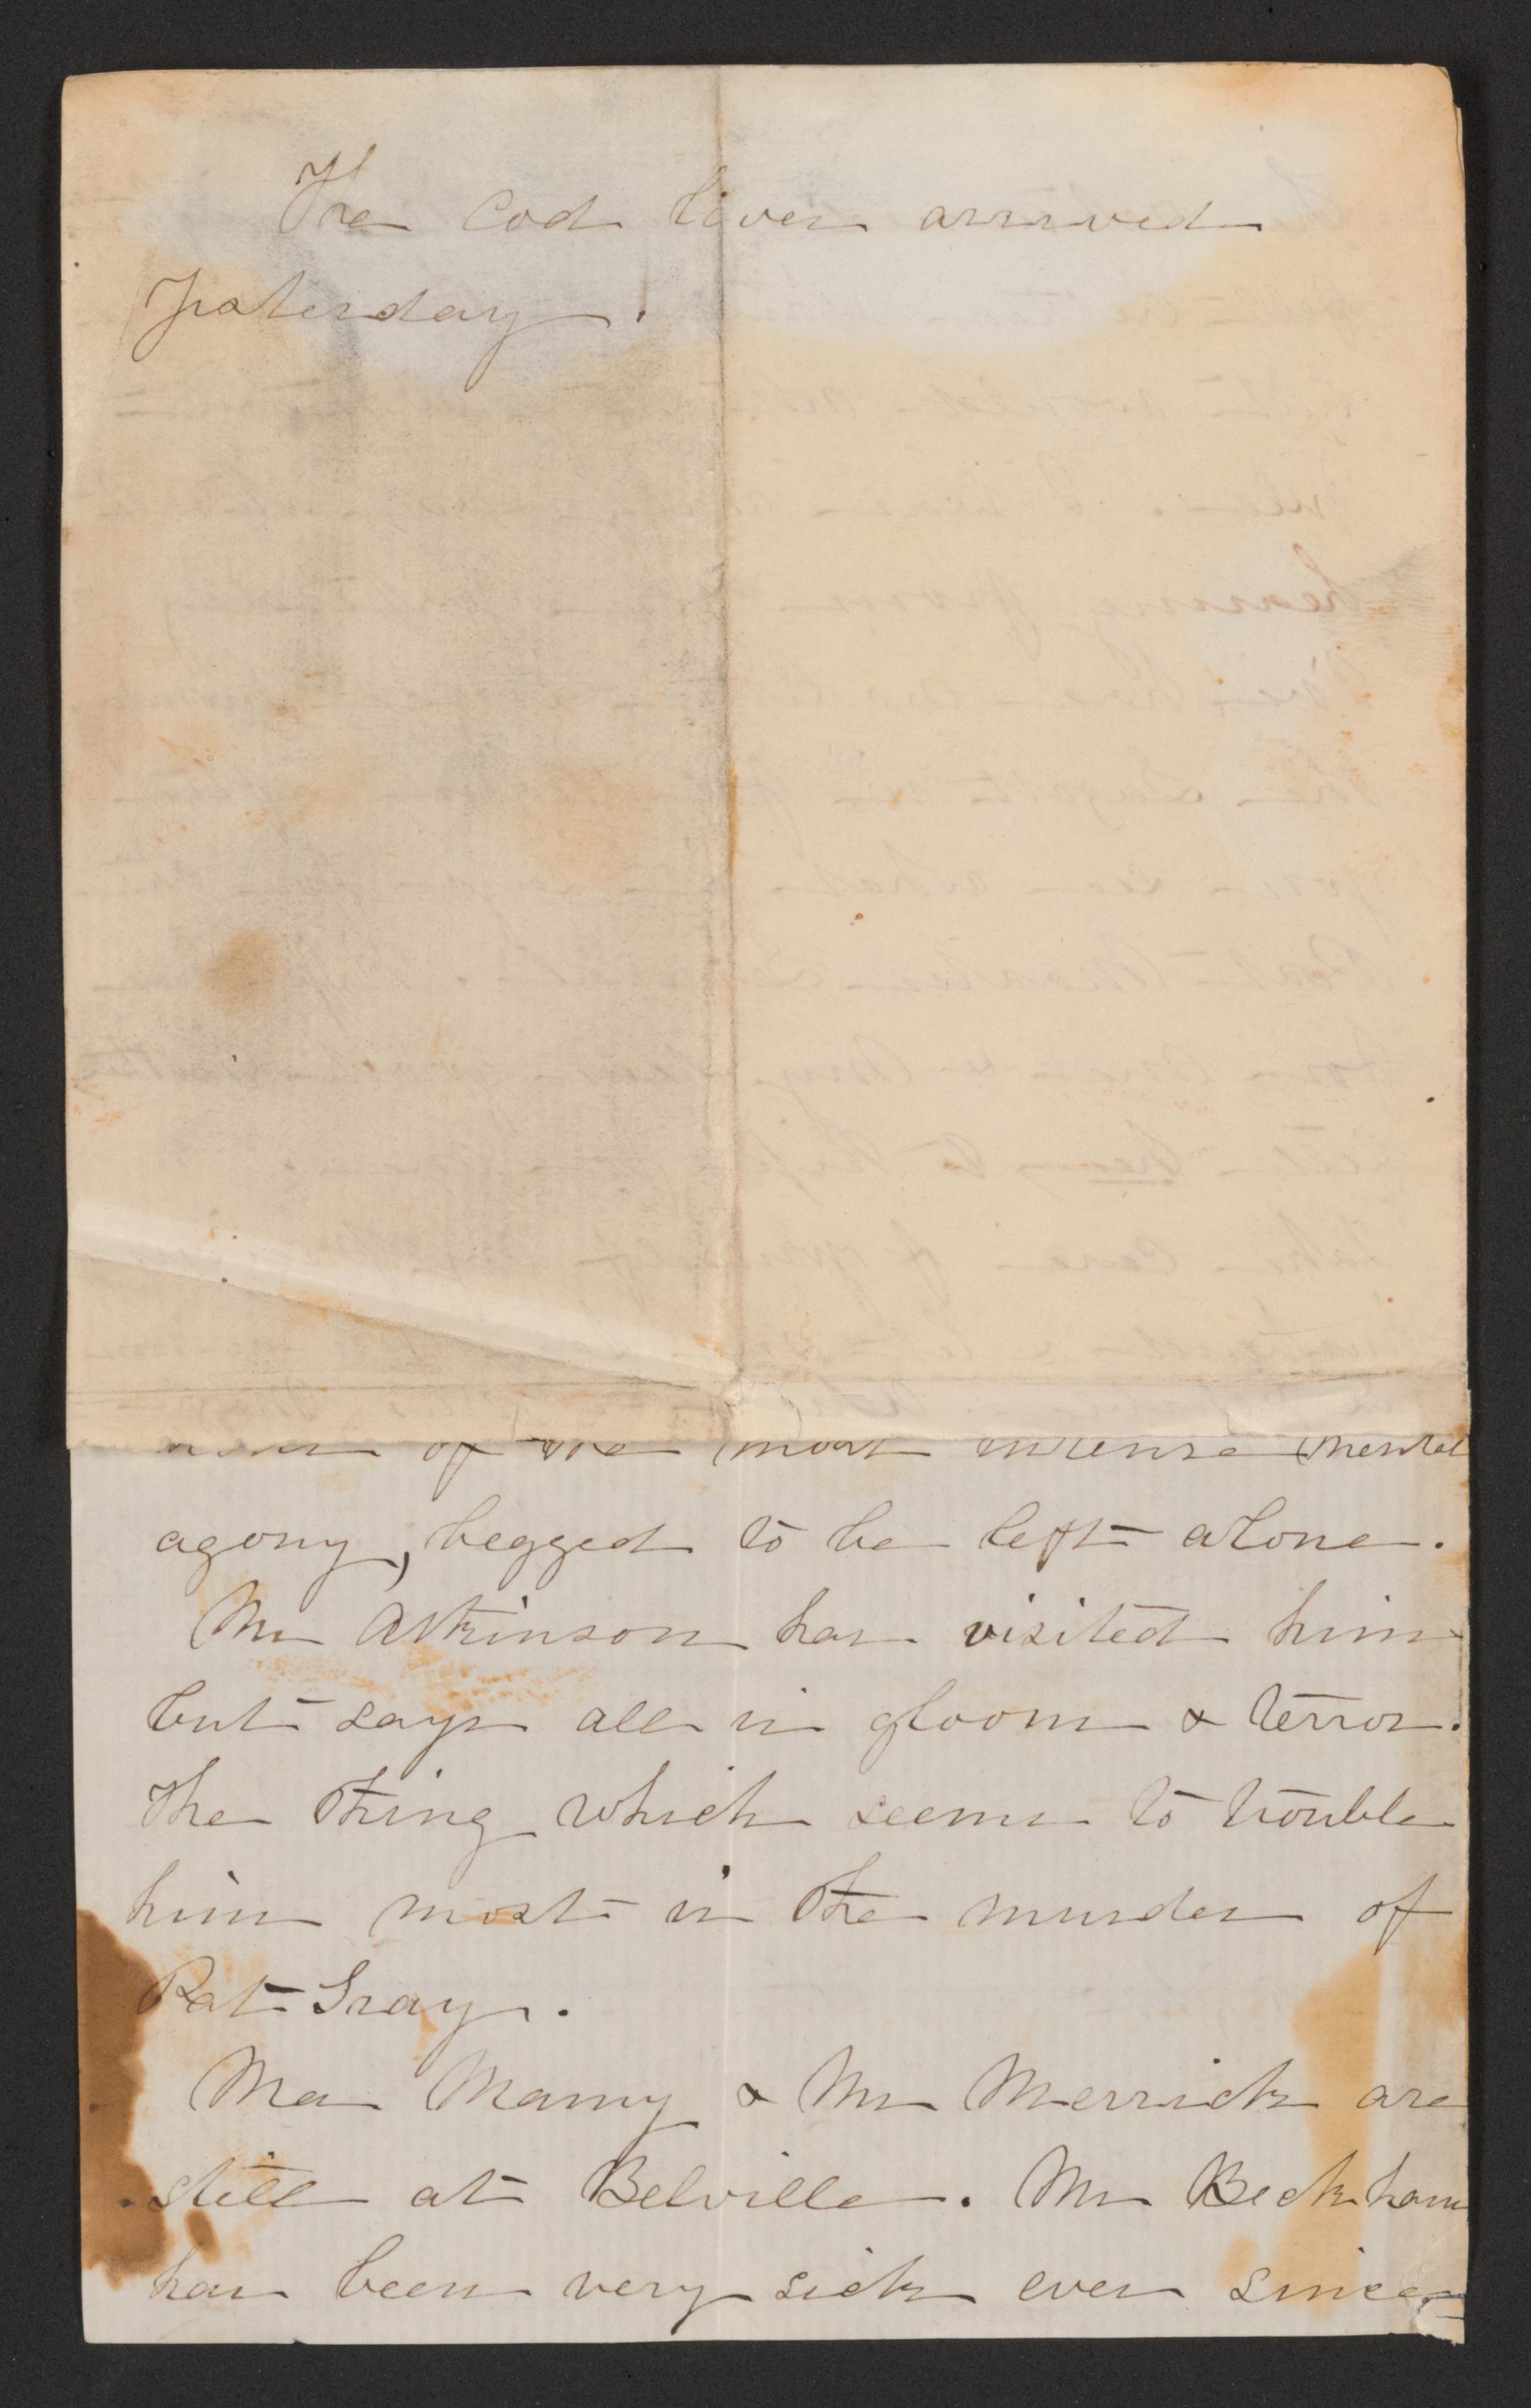 The Cod liver arrived
yesterday.
of the most intense mental
agony, begged to be left alone.
Mr Atkinson has visited him
but says all is gloom & terror.
The thing which seems to trouble
him most is the murder of
Pat Gray.
Ma Mamy & Mr Merrick are
still at Belville. Mr Beckham
has been very sick ever since